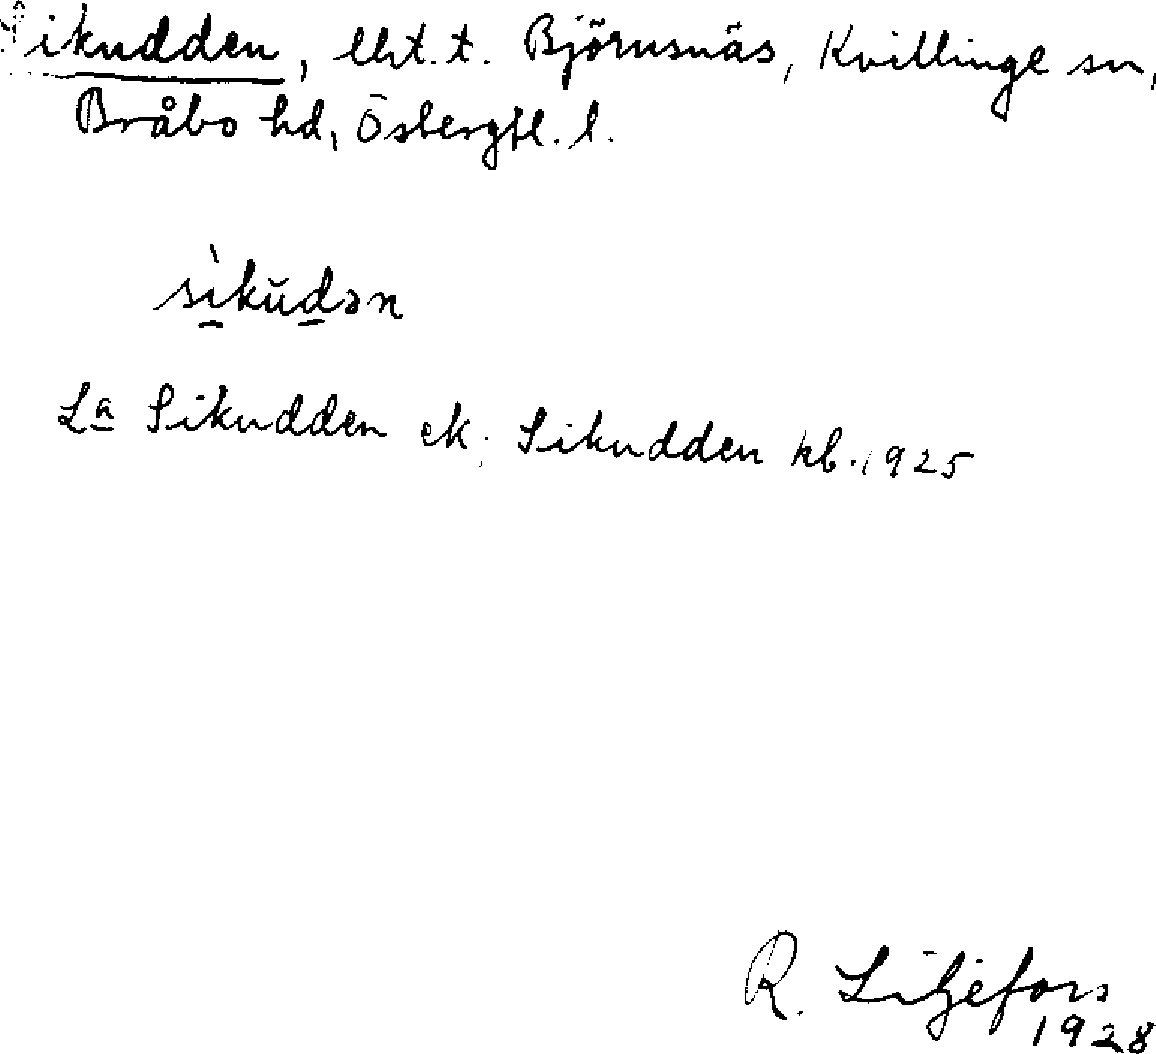 Sikudden, lht. t. Björnsnäs, Kvillinge sn,
Bråbo hd, Ösbergtl. l.
sìkŭdən
La Sikudden ek; Sikudden kb. 1925
R. Liljefors
1928